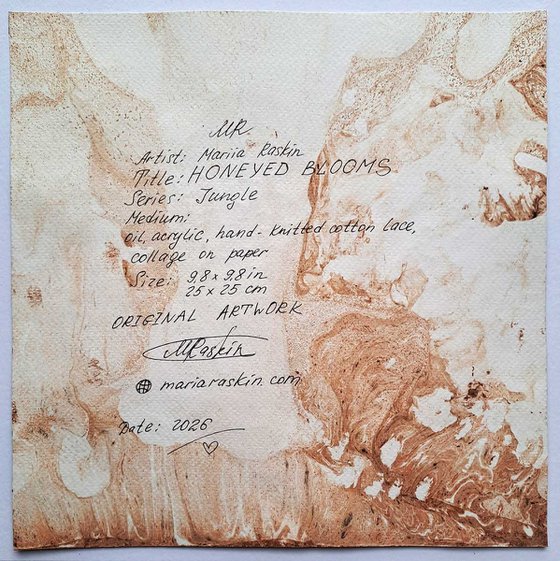 MR
Artist: Mariia Raskin
Title: HONEYED BLOOMS
Series: Jungle
Medium:
oil, acrylic, hand-knitted cotton lace,
collage on paper
Size: 9,8 x 9,8 in
25 x 25 cm
ORIGINAL ARTWORK
MRaskin
mariaraskin.com
Date: 2026